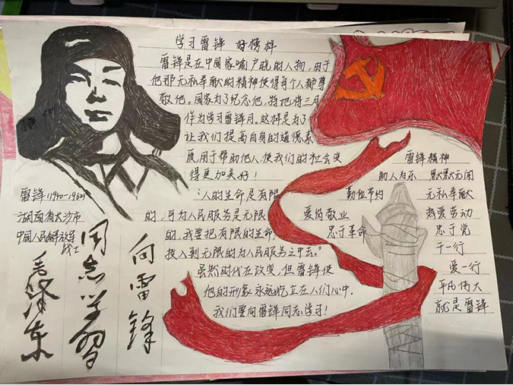 学习雷锋 好榜样
雷锋是在中国家喻户晓的人物,由于
他那无私奉献的精神使得每个人都尊
敬他。国家为了纪念他,特把将三月
作为学习雷锋月。这样是为了
让我们提高自身的道德素
质用于帮助他人,使我们的社会变
得更加美好!
“人的生命是有限
的,可为人民服务是无限
的,我要把有限的生命
投入到无限的为人民服务之中去。”
虽然时代在改变,但雷锋使
他的形象永远屹立在人们心中。
我们要向雷锋同志学习!
雷锋(1940-1962)
湖南省长沙市
中国人民解放军
战士
向雷锋
同志学习
毛泽东
雷锋精神
助人为乐 默默无闻
勤俭节约 无私奉献
爱岗敬业 热爱劳动
忠于革命 忠于党
干一行
爱一行
平凡伟大
就是雷锋